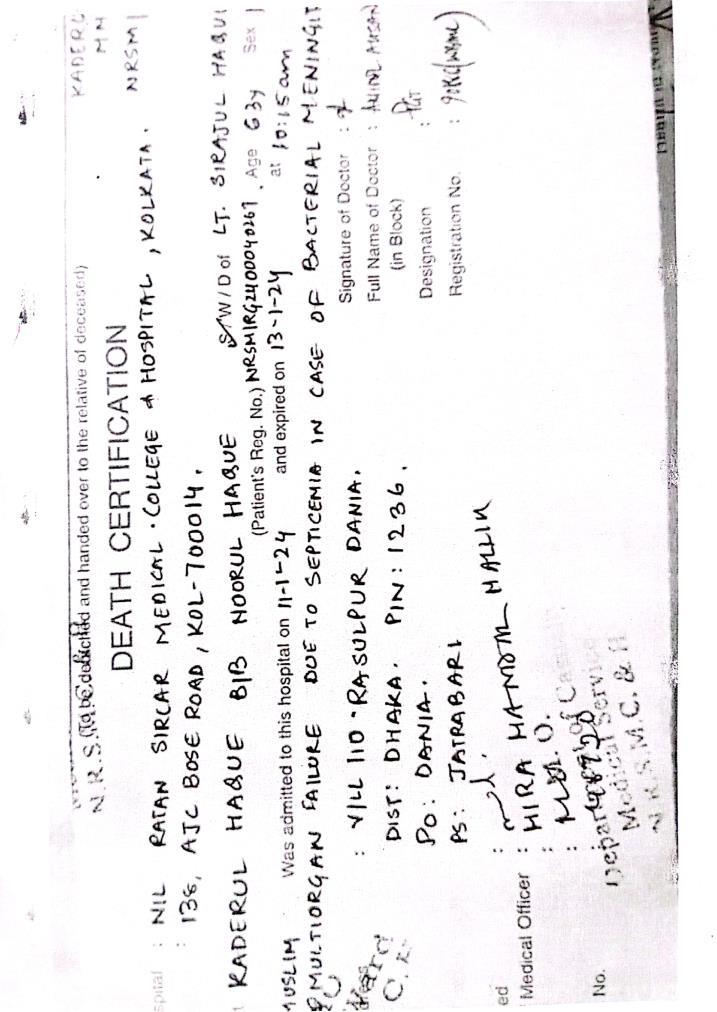 KADERU
MM
NRSM
N.R.S.
(To be detached and handed over to the relative of deceased)
DEATH CERTIFICATION
spital : NIL RATAN SIRCAR MEDICAL COLLEGE & HOSPITAL, KOLKATA.
: 138, AJC BOSE ROAD, KOL-700014.
KADERUL HAQUE B/B NOORUL HAQUE S/W/D of LT. SIRAJUL HAQUE
(Patient's Reg. No.) NRSM/RG2400040267, Age 63y Sex
MUSLIM Was admitted to this hospital on 11-1-24 and expired on 13-1-24 at 10:15am
MULTIORGAN FAILURE DUE TO SEPTICEMIA IN CASE OF BACTERIAL MENINGIT
: VILL 110 RASULPUR DANIA.
DIST: DHAKA. PIN: 1236.
PO: DANIA.
PS: JATRABARI
Signature of Doctor :
Full Name of Doctor : AHSAN
(in Block)
Designation : PGT
Registration No. :
ed :
Medical Officer : HIRA MANDAL MALLIK
: M.O.
No. :
Department of Casual
Medical Service
N.R.S.M.C. & H